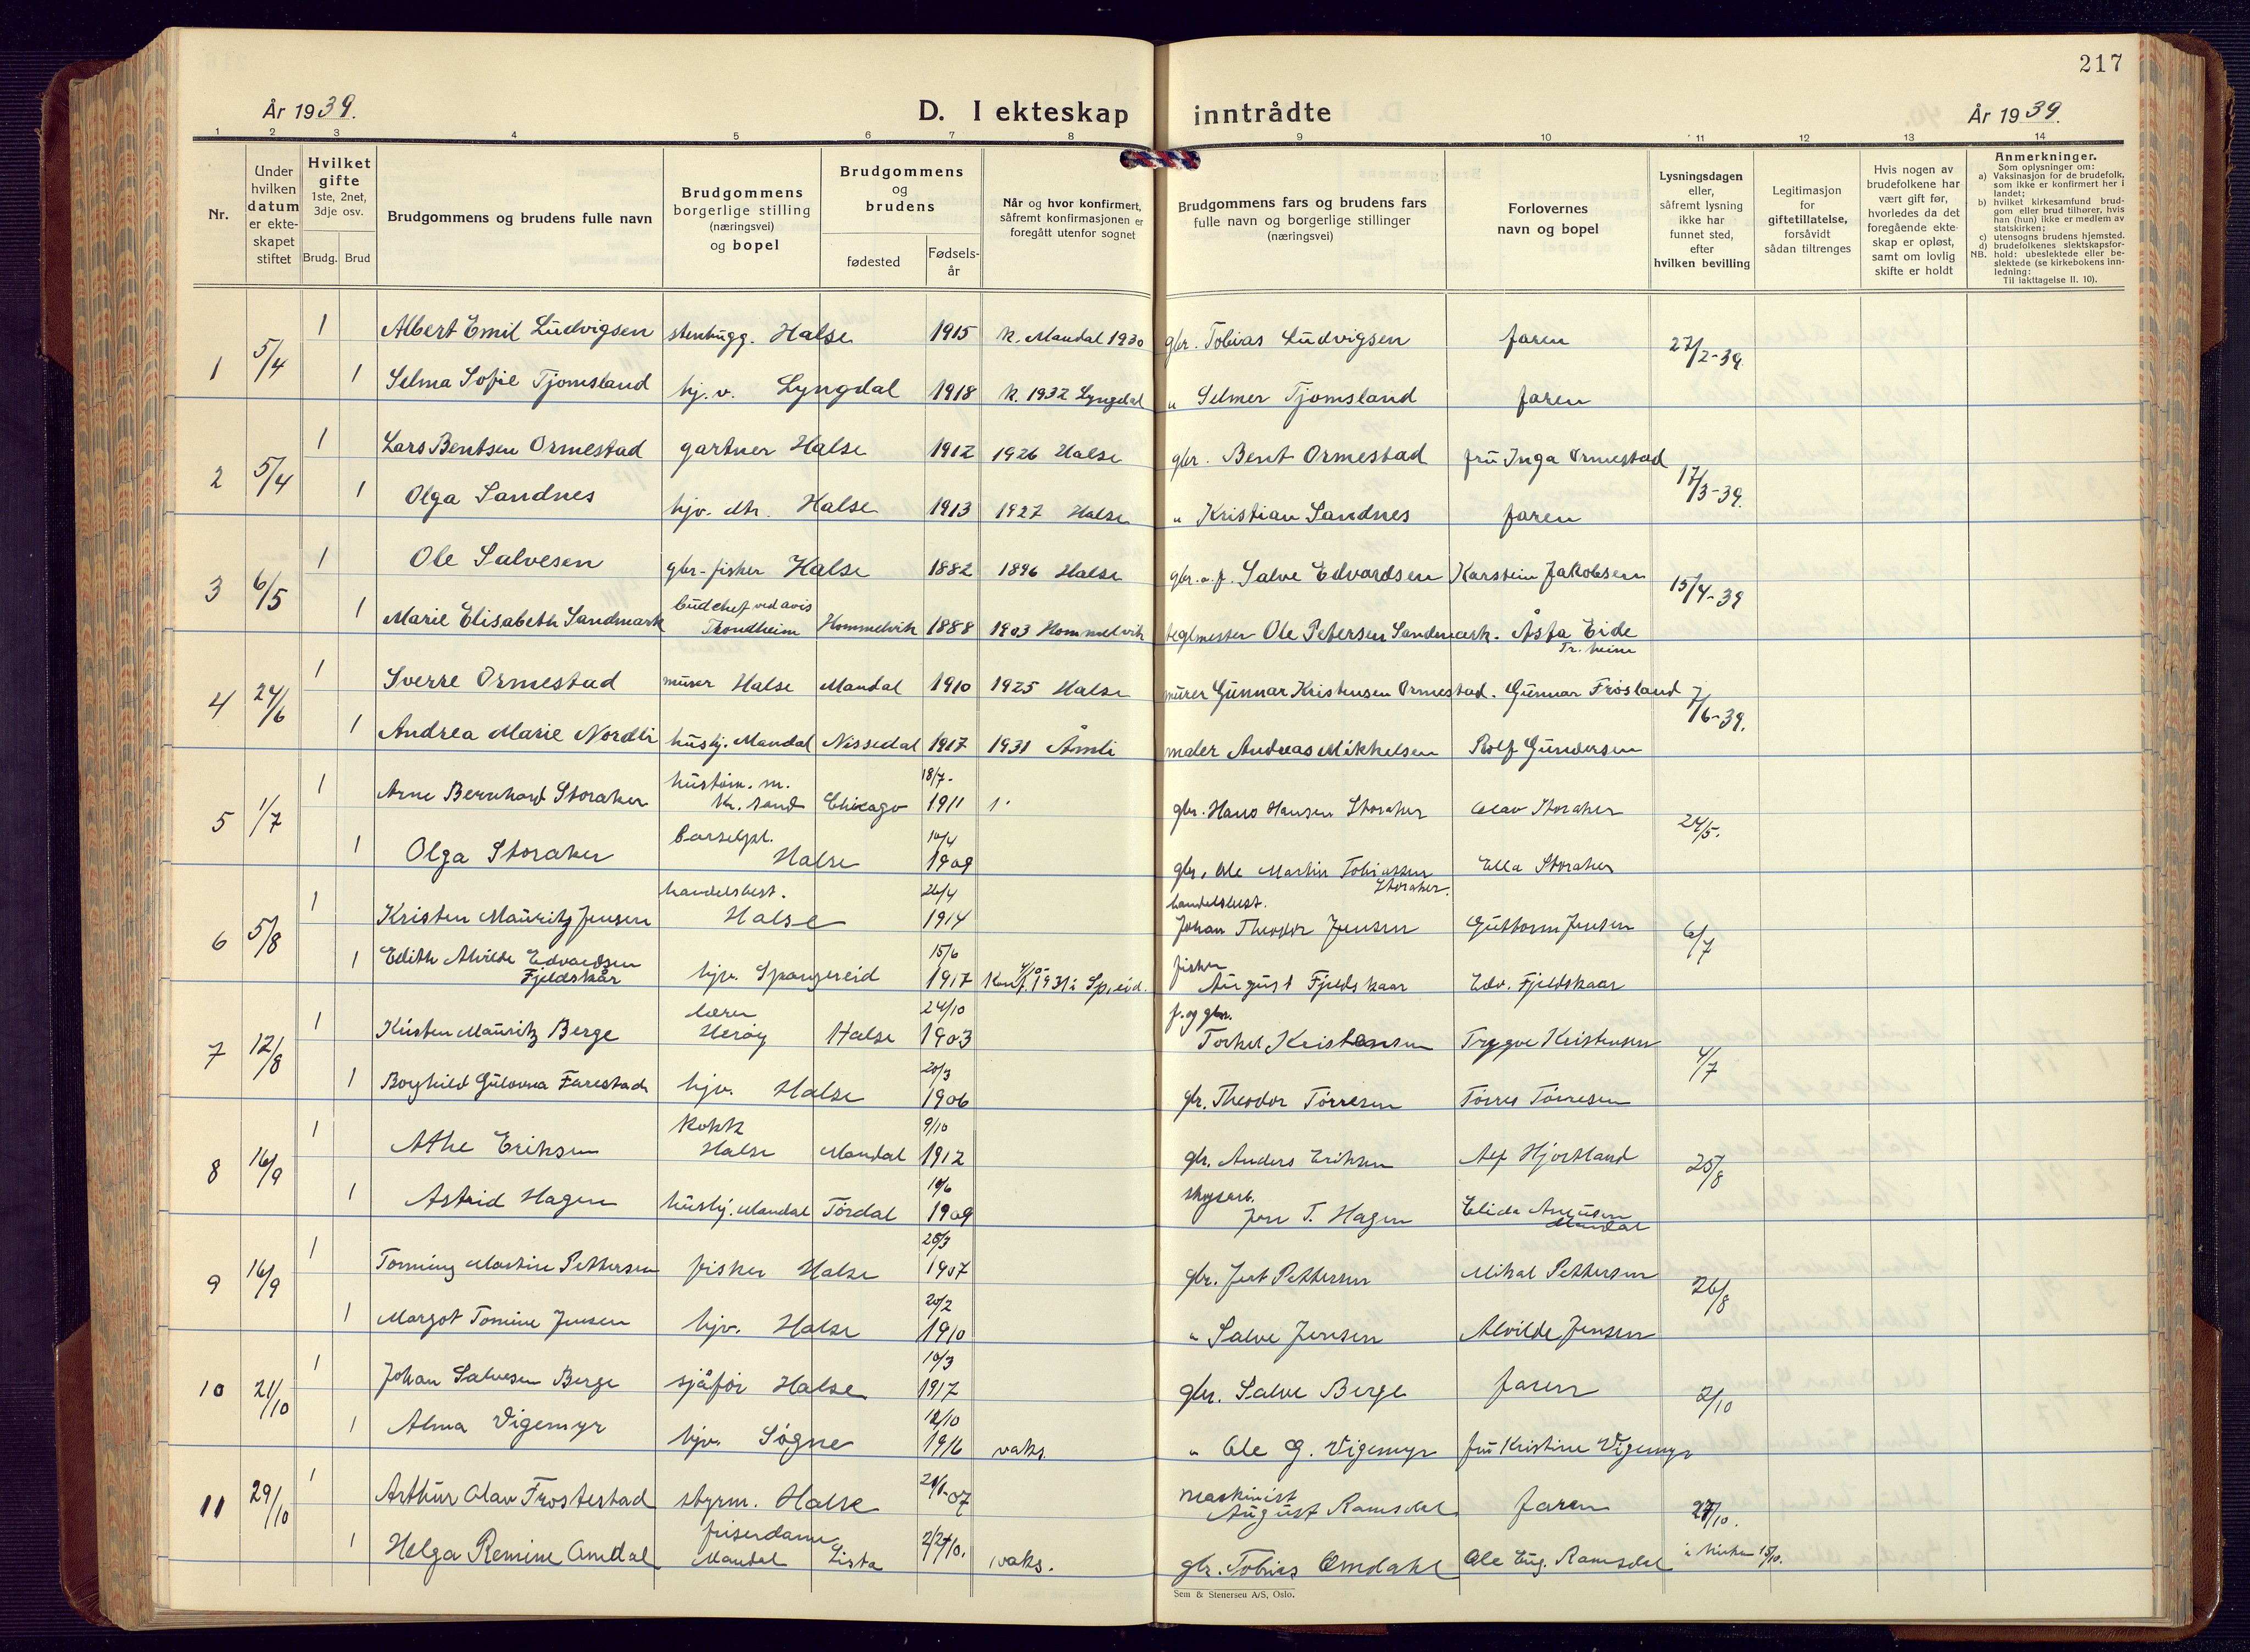 217
År 1939.
D. I ekteskap inntrådte
År 1939.
1 2 3 4 5 6 7 8 9 10 11 12 13 14
Nr.
Under hvilken datum er ekteskapet stiftet
Hvilket gifte 1ste, 2net, 3dje osv.
Brudg. Brud
Brudgommens og brudens fulle navn
Brudgommens borgerlige stilling (næringsvei) og bopel
Brudgommens og brudens
fødested
Fødselsår
Når og hvor konfirmert, såfremt konfirmasjonen er foregått utenfor sognet
Brudgommens fars og brudens fars fulle navn og borgerlige stillinger (næringsvei)
Forlovernes navn og bopel
Lysningsdagen eller, såfremt lysning ikke har funnet sted, efter hvilken bevilling
Legitimasjon for giftetillatelse, forsåvidt sådan tiltrenges
Hvis nogen av brudefolkene har vært gift før, hvorledes da det foregående ekteskap er opløst, samt om lovlig skifte er holdt
Anmerkninger.
Som oplysninger om:
a) Vaksinasjon for de brudefolk, som ikke er konfirmert her i landet;
b) hvilket kirkesamfund brudgom eller brud tilhører, hvis han (hun) ikke er medlem av statskirken;
c) utensogns brudens hjemsted.
d) brudefolkenes slektskapsforhold: ubeslektede eller beslektede (se kirkebokens innledning:
NB. Til iakttagelse II. 10).
1 5/4 1 Albert Emil Ludvigsen stenhugg. Halse 1915 k. Mandal 1930 gbr. Tobias Ludvigsen faren 27/2-39
1 Selma Sofie Tjomsland hj. v. Lyngdal 1918 k. 1932 Lyngdal " Selmer Tjomsland faren
2 5/4 1 Lars Bentsen Ormestad gartner Halse 1912 1926 Halse gbr. Bent Ormestad fru Inga Ormestad 17/3-39.
1 Olga Sandnes hjv. dtr. Halse 1913 1927 Halse " Kristian Sandnes faren
3 6/5 1 Ole Salvesen gbr-fisker Halse 1882 1896 Halse gbr. o. f. Salve Edvardsen Karstein Jakobsen 15/4-39
1 Marie Elisabeth Sandmark budchef ved avis Trondheim Hommelvik 1888 1903 Hommelvik teglmester Ole Petersen Sandmark. Åsta Eide Tr.heim
4 24/6 1 Sverre Ormestad murer Halse Mandal 1910 1925 Halse murer Gunnar Kristensen Ormestad. Gunnar Frøsland 7/6-39.
1 Andrea Marie Nordli hushj. Mandal Nissedal 1917 1931 Åmli maler Andreas Mikkelsen Rolf Gundersen
5 1/7 1 Arne Bernhard Storaker hustøm. m. Kr.sand Chicago 18/7- 1911 gbr. Hans Hansen Storaker Olav Storaker 24/5.
1 Olga Storaker barselpl. Halse 10/4 1909 gbr. Ole Martin Tobiassen Storaker. Ella Storaker
6 5/8 1 Kristen Mauritz Jensen handelsbest. Halse 26/4 1914 handelsbest. Johan Theodor Jensen Guttorm Jensen 6/7
1 Edith Alvilde Edvardsen Fjeldskår hjv. Spangereid 15/6 1917 Konf. 4/10 1931 i Sp.eid. fisker August Fjeldskaar Edv. Fjeldskaar
7 12/8 1 Kristen Mauritz Berge lærer Herøy Halse 24/10 1903 f. og gbr. Torkel Kristensen Trygve Kristensen 4/7
1 Borghild Gulovna Farestad hjv. Halse 20/3 1906 gbr. Theodor Tørresen Tørres Tørresen
8 16/9 1 Atle Eriksen Kokk Halse Mandal 9/10 1912 gbr. Anders Eriksen Alf Hjortland 25/8
1 Astrid Hagen hushj. Mandal Tørdal 10/6 1909 skogsarb. Jon T. Hagen Elida Mandal
9 16/9 1 Tonning Martin Pettersen fisker Halse 25/3 1907 gbr. Pettersen Mikal Pettersen 26/8
1 Margot Tomine Jensen hjv. Halse 20/2 1910 " Salve Jensen Alvilde Jensen
10 21/10 1 Johan Salvesen Berge sjåfør Halse 10/3 1917 gbr. Salve Berge faren 2/10
1 Alma Vigemyr hjv. Søgne 12/10 1916 vaks. " Ole G. Vigemyr fru Kristine Vigemyr
11 29/10 1 Arthur Olav Frostestad styrm. Halse maskinist August Ramsdal faren 27/10.
1 Helga Remine Omdal friserdame Mandal Lista vaks. gbr. Tobias Omdahl Ole Eug. Ramsdal i kirken 15/10.
Sem & Stenersen A/S, Oslo.